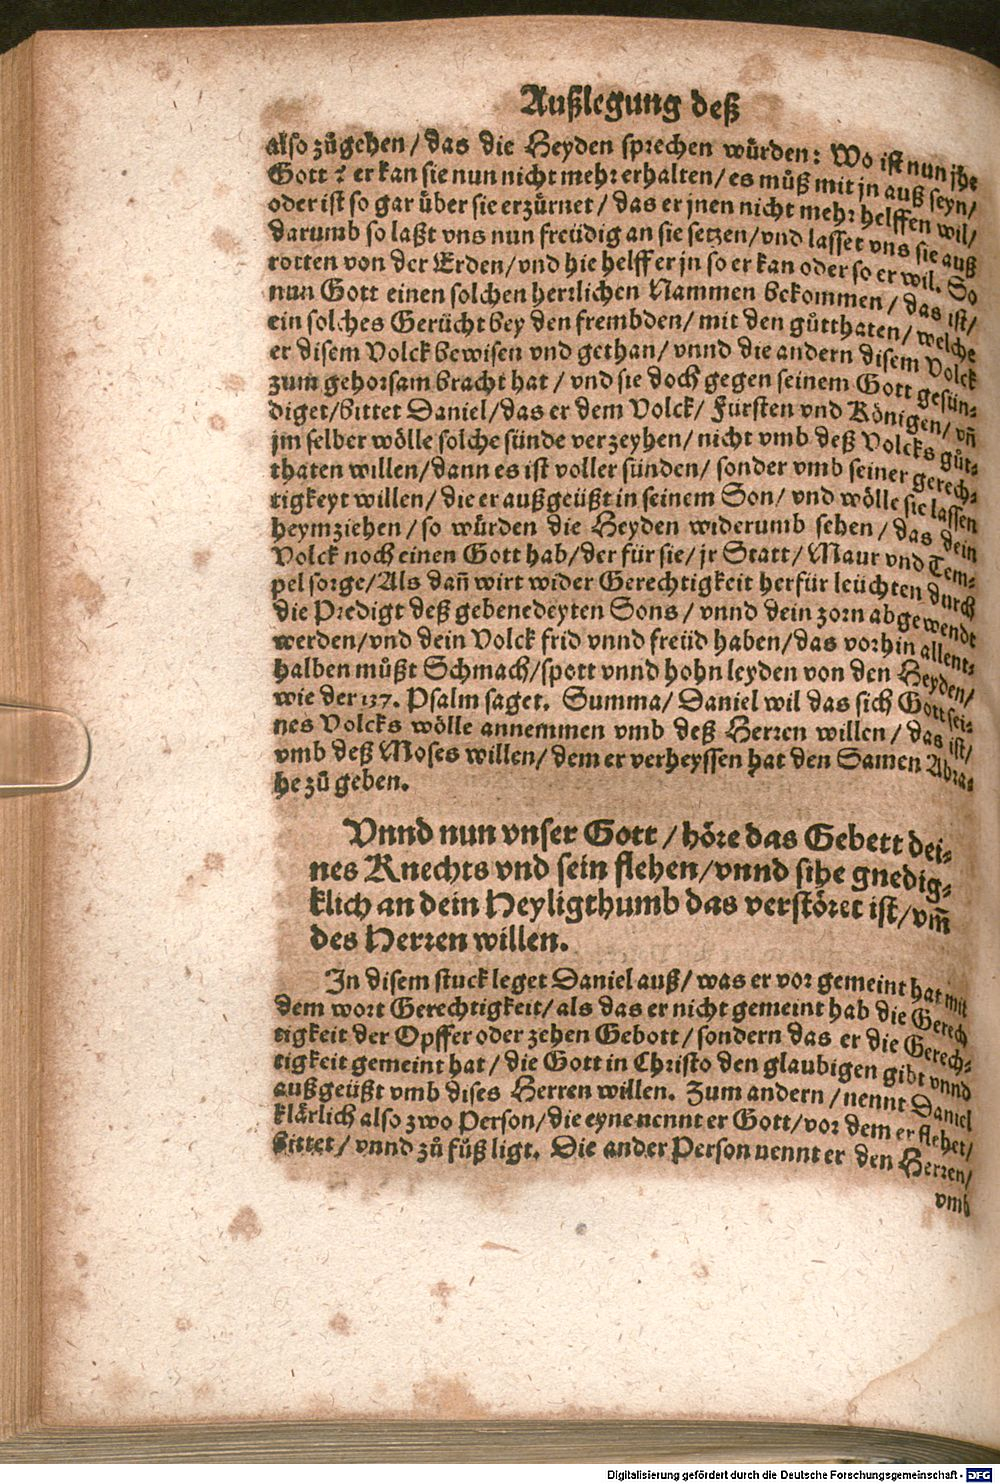 Außlegung deß
also zůgehen / das die Heyden sprechen würden: Wo ist nun jhr
Gott? er kan sie nun nicht mehr erhalten / es můß mit jn auß seyn /
oder ist so gar über sie erzürnet / das er jnen nicht mehr helffen wil /
darumb so laßt vns nun freüdig an sie setzen / vnd lasset vns sie auß
rotten von der Erden / vnd hie helff er jn so er kan oder so er wil. So
nun Gott einen solchen herrlichen Nammen bekommen / das ist /
ein solches Gerücht bey den frembden / mit den gůtthaten / welche
er disem Volck bewisen vnd gethan / vnnd die andern disem Volck
zum gehorsam bracht hat / vnd sie doch gegen seinem Gott gesün-
diget / bittet Daniel / das er dem Volck / Fürsten vnd Königen / vñ
jm selber wölle solche sünde verzeyhen / nicht vmb deß Volcks gůt-
thaten willen / dann es ist voller sünden / sonder vmb seiner gerech-
tigkeyt willen / die er außgeüßt in seinem Son / vnd wölle sie lassen
heymziehen / so würden die Heyden widerumb sehen / das dein
Volck noch einen Gott hab / der für sie / jr Statt / Maur vnd Tem-
pel sorge / Als dañ wirt wider Gerechtigkeit herfür leüchten durch
die Predigt deß gebenedeyten Sons / vnnd dein zorn abgewendt
werden / vnd dein Volck frid vnnd freüd haben / das vorhin allent-
halben můßt Schmach / spott vnnd hohn leyden von den Heyden /
wie der 137. Psalm saget. Summa / Daniel wil das sich Gott sei-
nes Volcks wölle annemmen vmb deß Herren willen / das ist /
vmb deß Moses willen / dem er verheyssen hat den Samen Abra-
he zů geben.
Vnnd nun vnser Gott / höre das Gebett dei-
nes Knechts vnd sein flehen / vnnd sihe gnedig-
klich an dein Heyligthumb das verstöret ist / vm̃
des Herren willen.
In disem stuck leget Daniel auß / was er vor gemeint hat mit
dem wort Gerechtigkeit / als das er nicht gemeint hab die Gerech
tigkeit der Opffer oder zehen Gebott / sondern das er die Gerech-
tigkeit gemeint hat / die Gott in Christo den glaubigen gibt vnnd
außgeüßt vmb dises Herren willen. Zum andern / nennt Daniel
klärlich also zwo Person / die eyne nennt er Gott / vor dem er flehet /
bittet / vnnd zů fůß ligt. Die ander Person nennt er den Herren /
vmb
Digitalisierung gefördert durch die Deutsche Forschungsgemeinschaft - DFG